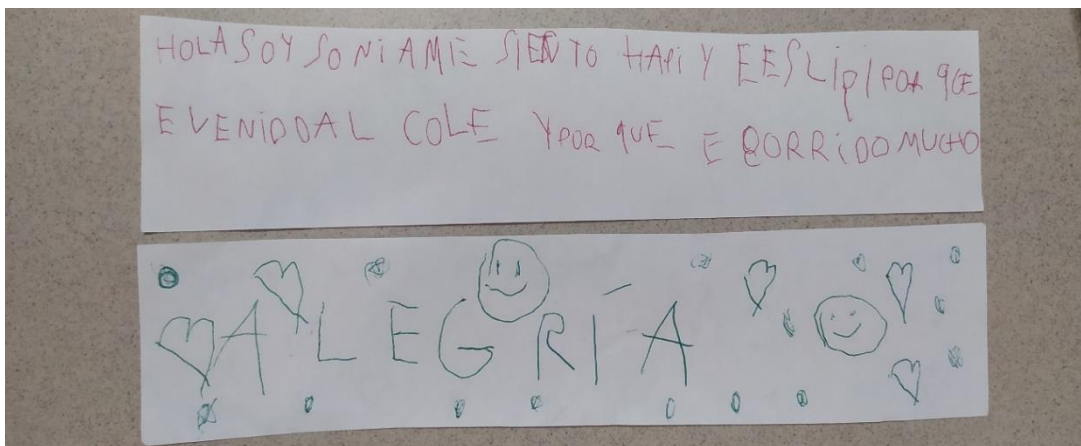 HOLA SOY SONiA ME SIENTO HAPi Y EESLipi POR QUE
E VENIDO AL COLE Y POR QUE E CORRiDO MUCHO
ALEGRÍA